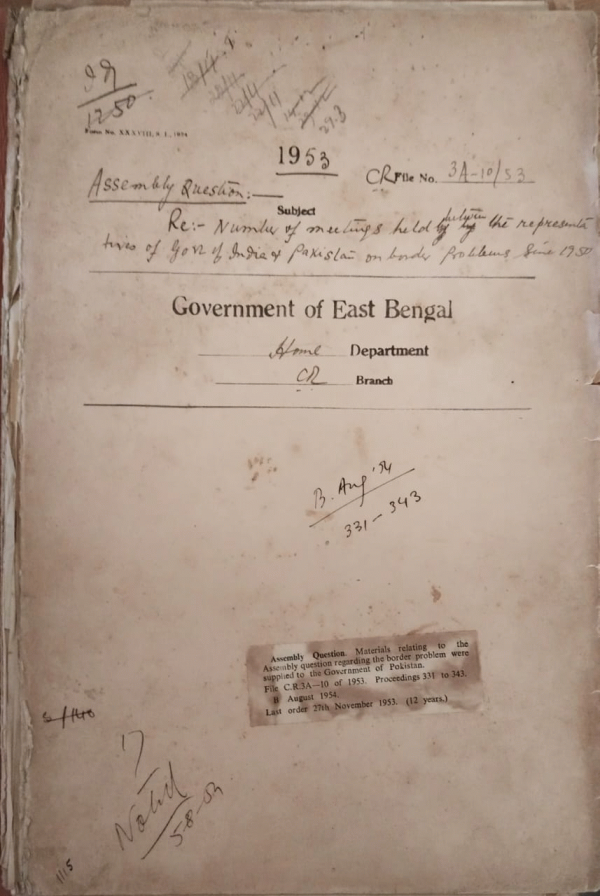 12-50
Form No. XXXVIII, S. I., 1954
1953
CR File No. 3A-10/53
Assembly Question:—
Subject
Re:- Number of meetings held between the representa
tives of Govt of India & Pakistan on border Problems Since 1950
Government of East Bengal
Home Department
CR Branch
B. Aug '54
331 – 343
Assembly Question. Materials relating to the
Assembly question regarding the border problem were
supplied to the Government of Pakistan.
File C.R.3A—10 of 1953. Proceedings 331 to 343.
B August 1954.
Last order 27th November 1953. (12 years.)
1115